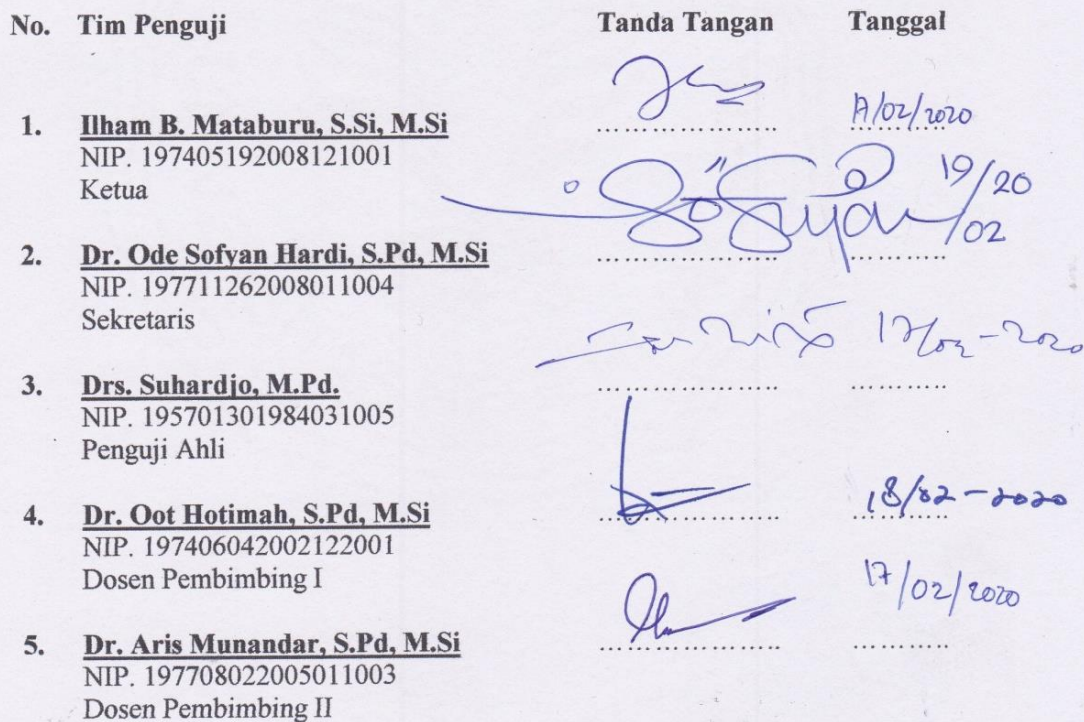 No. Tim Penguji Tanda Tangan Tanggal
1. Ilham B. Mataburu, S.Si, M.Si .................. /02/2020
NIP. 197405192008121001
Ketua
19/20
02
2. Dr. Ode Sofyan Hardi, S.Pd, M.Si .................. ............
NIP. 197711262008011004
Sekretaris
3. Drs. Suhardjo, M.Pd. .................. ............
NIP. 195701301984031005
Penguji Ahli
4. Dr. Oot Hotimah, S.Pd, M.Si .................. 18/02-2020
NIP. 197406042002122001
Dosen Pembimbing I
17/02/2020
5. Dr. Aris Munandar, S.Pd, M.Si .................. ............
NIP. 197708022005011003
Dosen Pembimbing II